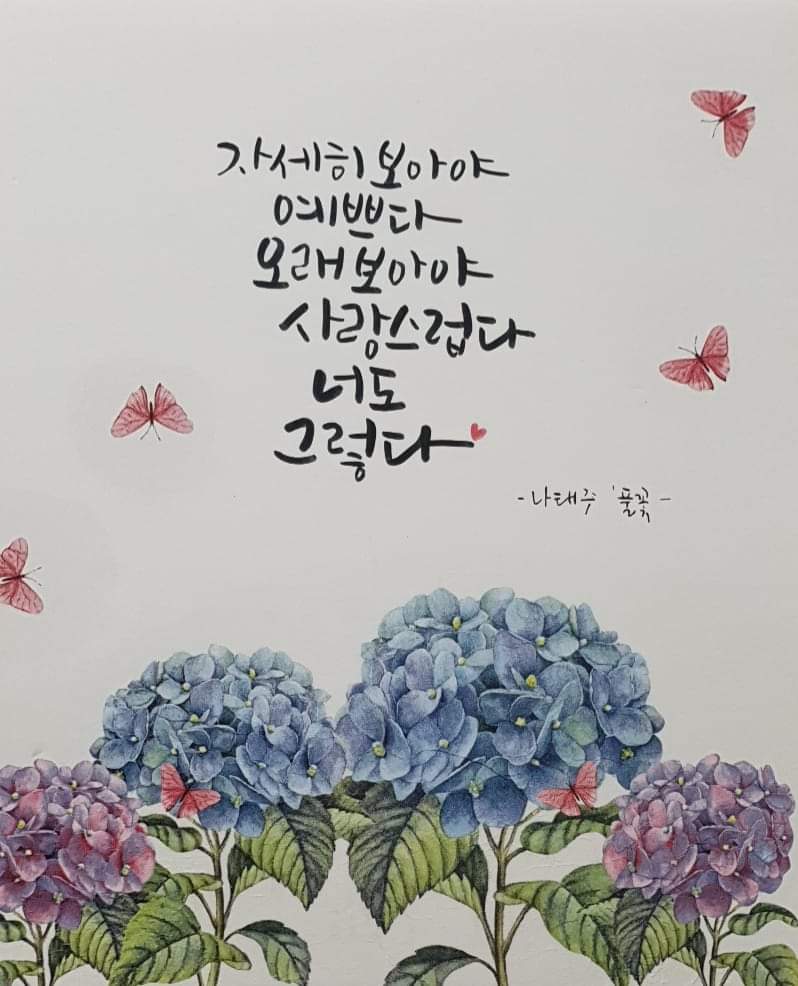 자세히 보아야
예쁘다
오래 보아야
사랑스럽다
너도
그렇다
-나태주 '풀꽃-